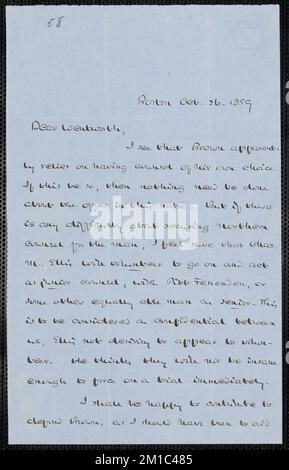 58
Boston Oct. 26. 1859
Dear Wentworth,
I see that Brown apparent-
ly relies on having counsel of his own choice.
If this be so, then nothing need be done
about the offer in this note. But if there
is any difficulty about securing Northern
Counsel for the man, I feel sure that Chas.
M. Ellis will volunteer to go on and act
as junior counsel, with Pitt Fessenden, or
some other equally able man as senior. This
is to be considered as confidential between
us, Ellis not desiring to appear to volun-
teer. He thinks they will not be insane
enough to force on a trial immediately.
I shall be happy to contribute to
defend Brown, as I should have been to aid
alamy
Image ID: 2M1C485
www.alamy.com